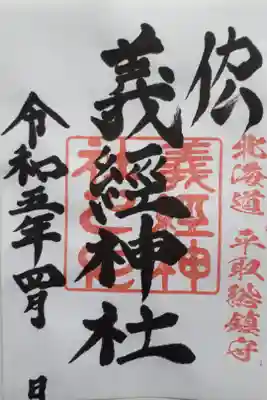 北海道 平取総鎮守
義經神社
義經神
令和五年四月 日